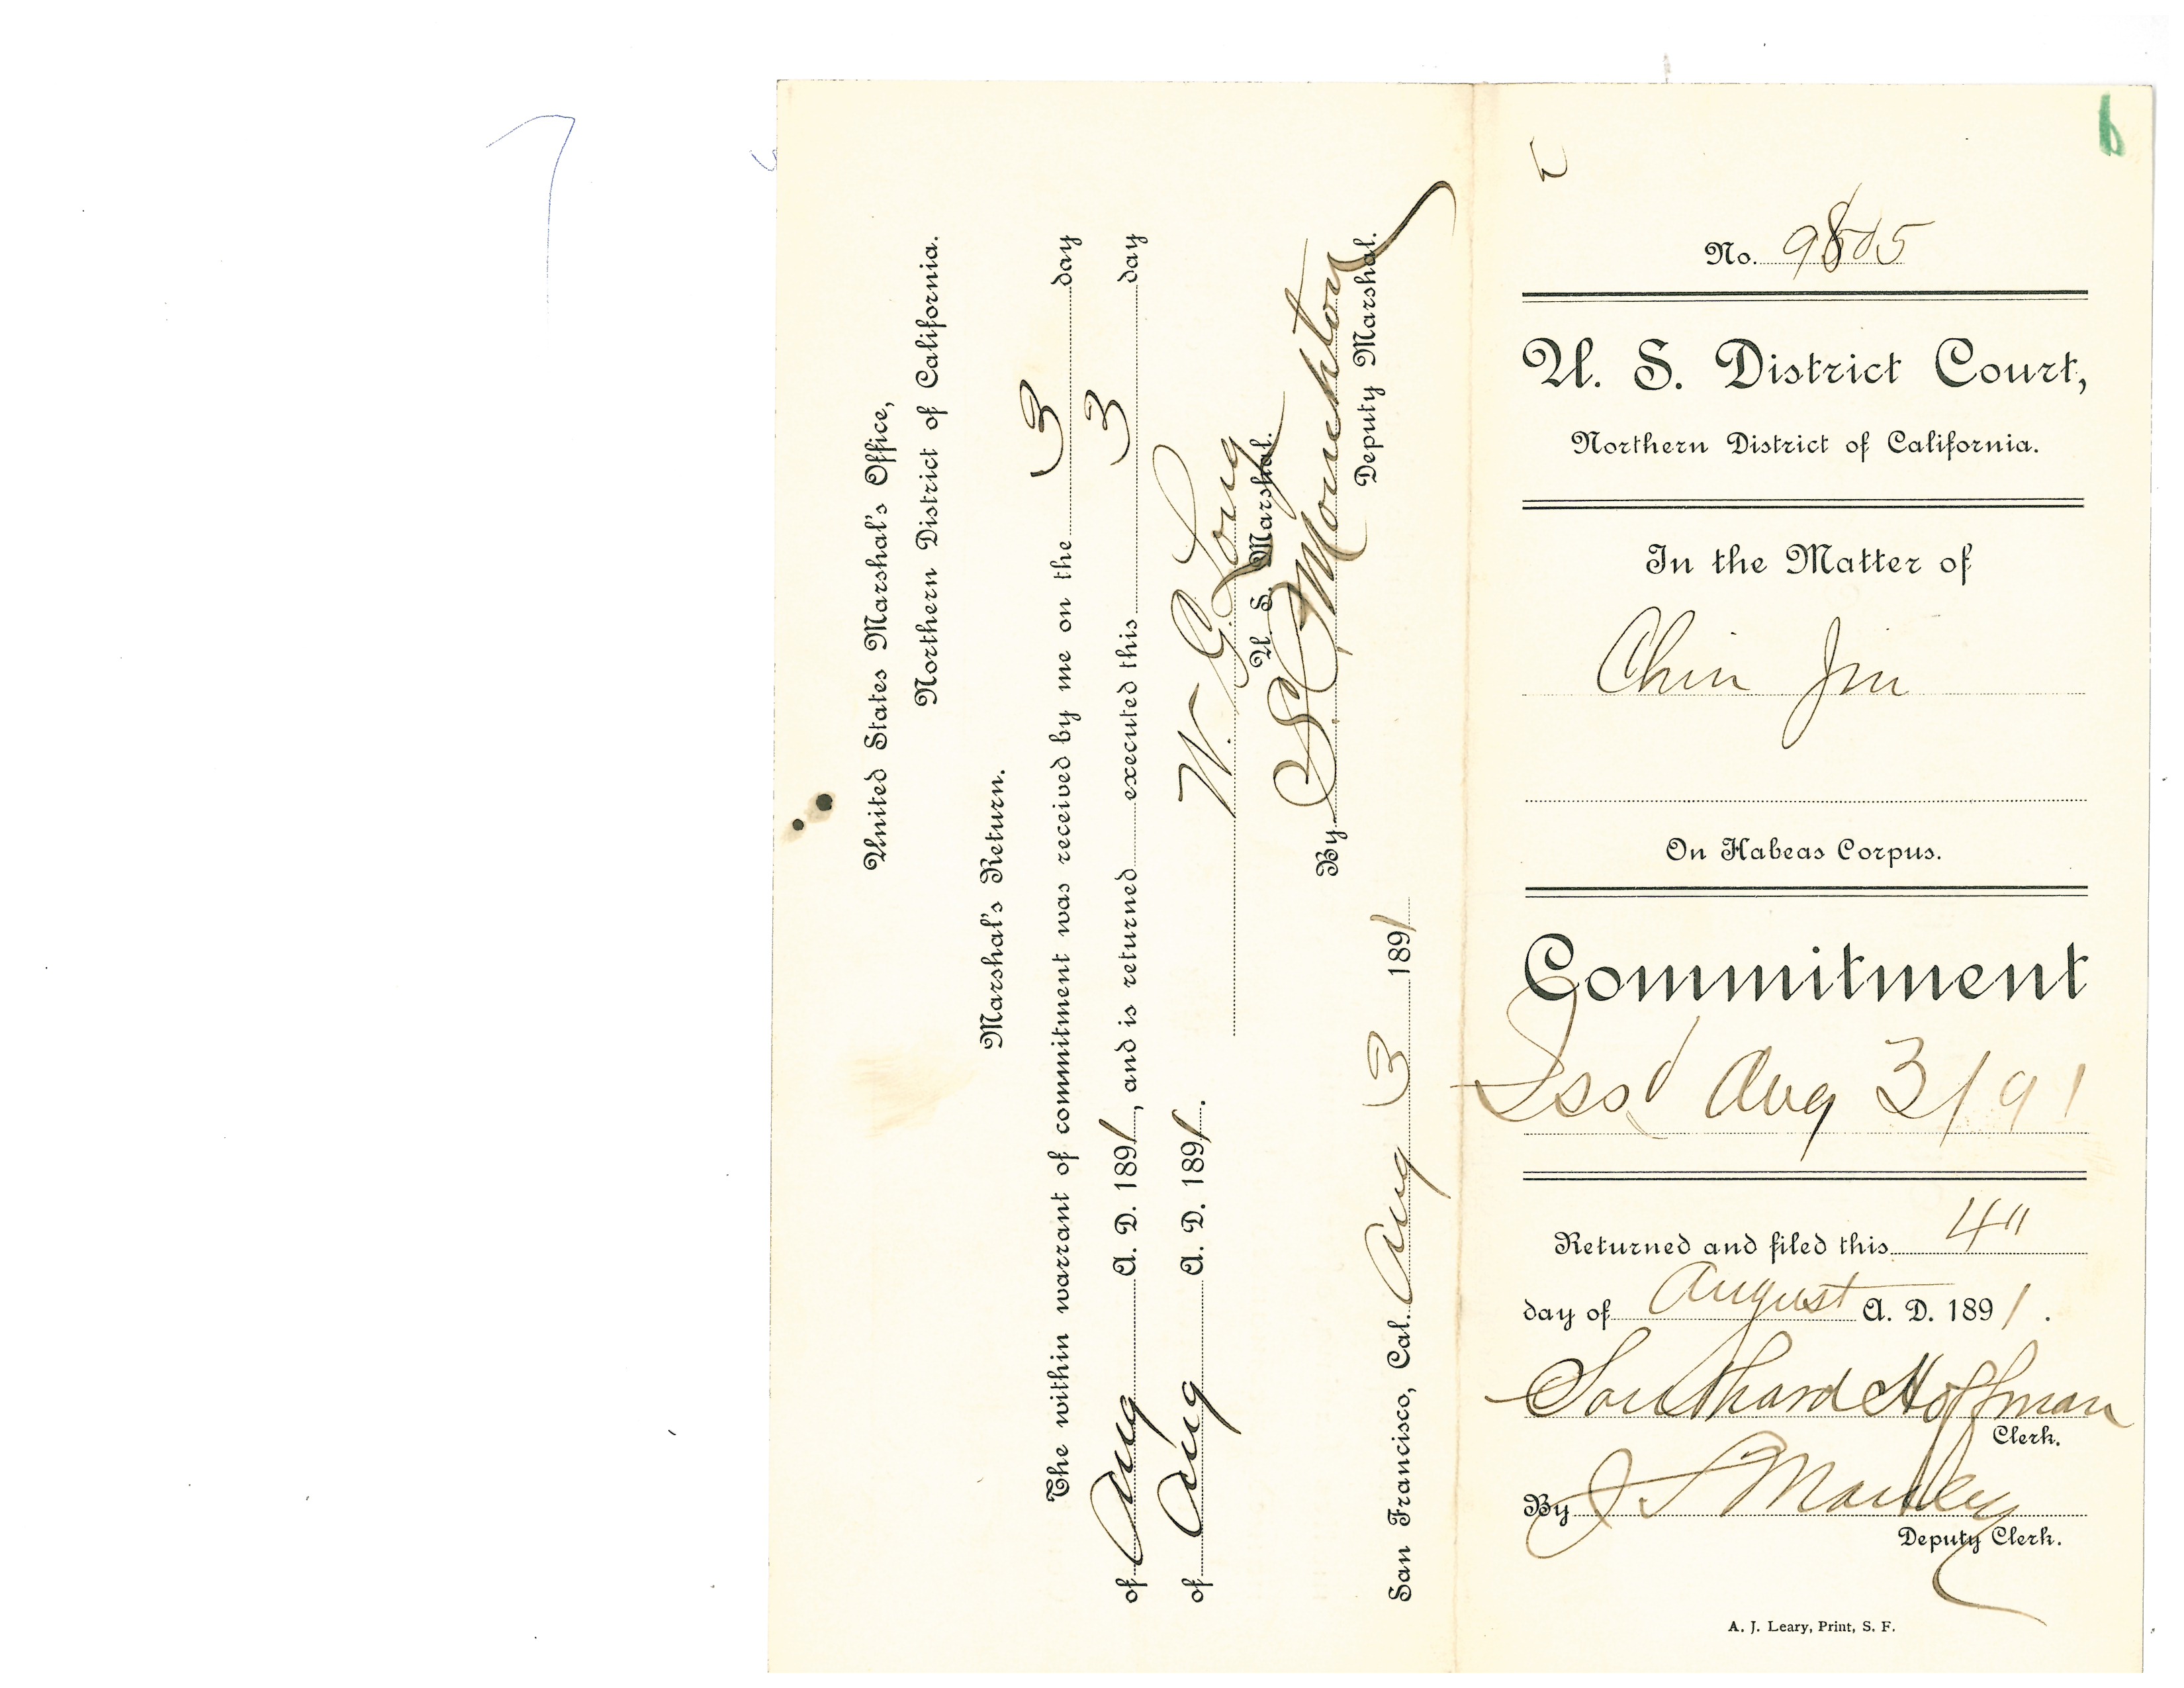 United States Marshal's Office,
Northern District of California.
Marshal's Return.
The within warrant of commitment was received by me on the 3 day
of Aug A. D. 1891, and is returned executed this 3 day
of Aug A. D. 1891.
W. G. Long
U. S. Marshal.
By S. C. Monckton
Deputy Marshal.
San Francisco, Cal. Aug 3 1891
No. 9805
U. S. District Court,
Northern District of California.
In the Matter of
Chin Jin
On Habeas Corpus.
Commitment
Issd Aug 3/91
Returned and filed this 4"
day of August A. D. 1891.
Southard Hoffman
Clerk.
By J S Manley
Deputy Clerk.
A. J. Leary, Print, S. F.